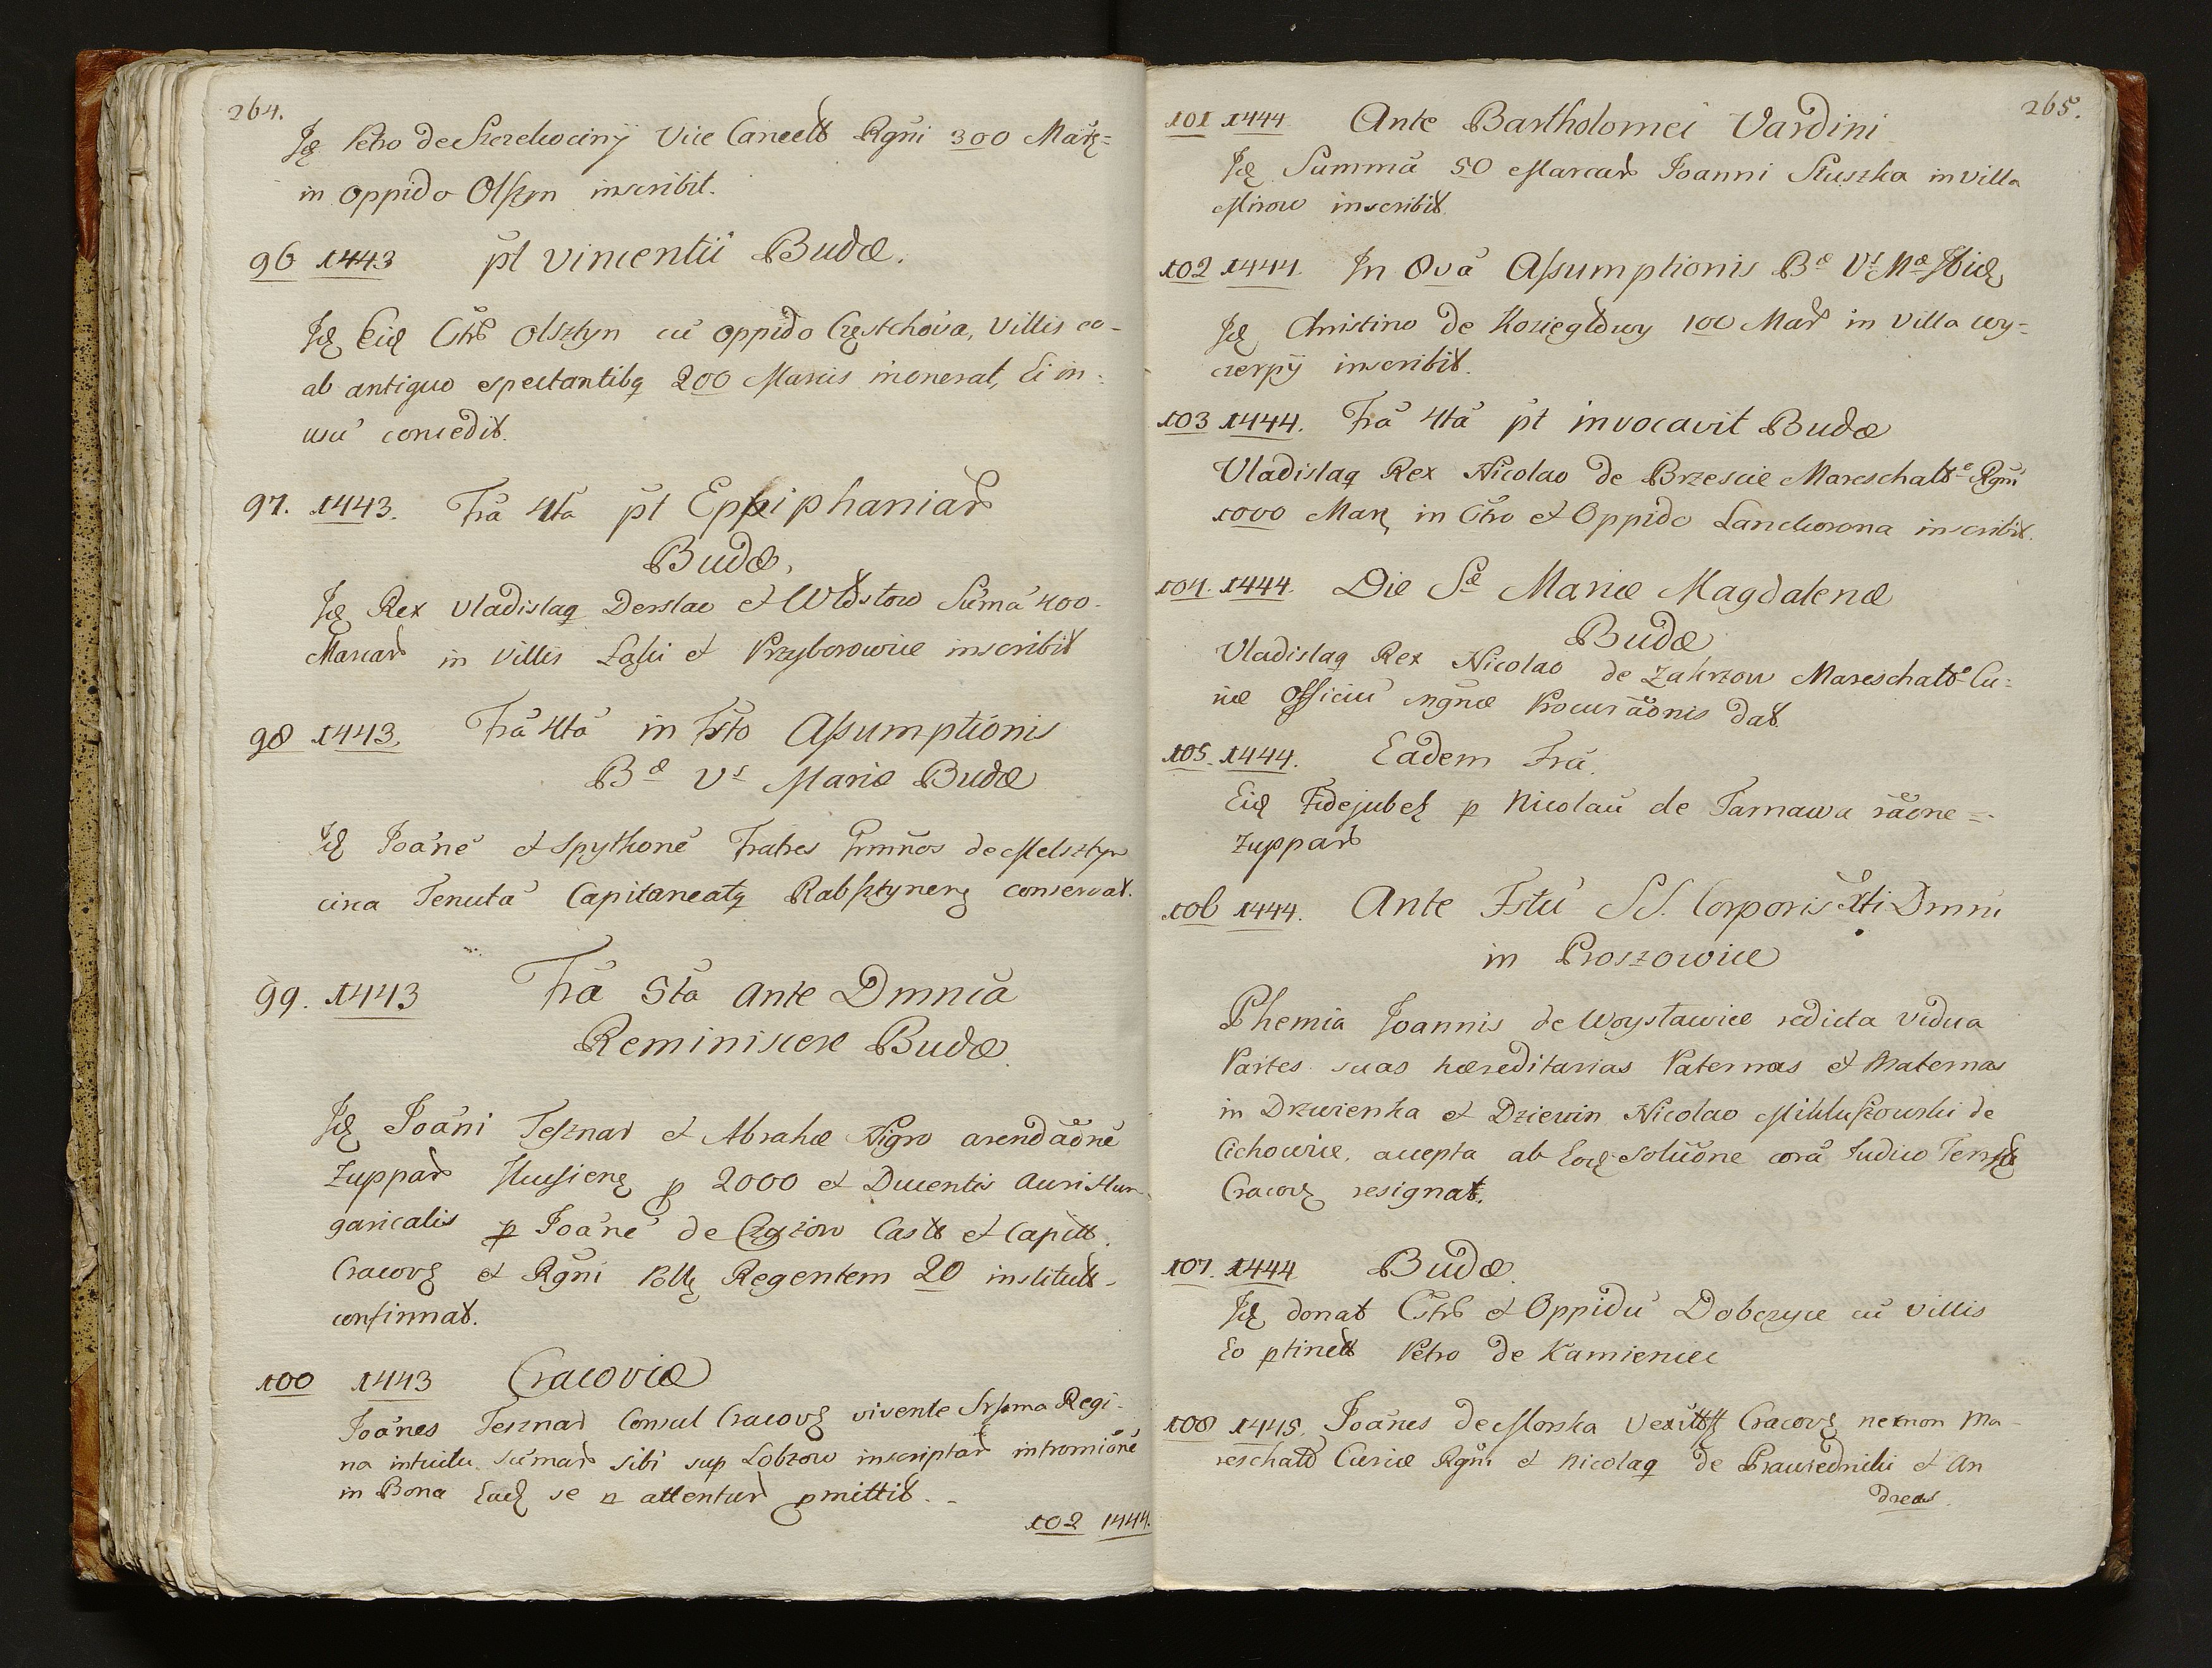 264.
Jdę Petro de Szczekociny Vice Cancell Rgni 300 Mark=
in Oppido Olsztyn inscribit.
96 1443 pt Vincentii Budæ.
Jdę Eidę Ctrũ Olsztyn cũ oppido Częstchova, Villis eo-
ab antiquo spectantibq 200 Marcis inonerat, Ei in=
usũ concedit.
97. 1443. Fra 4ta pt Eppiphaniar
Budæ.
Jdę Rex Vladislaq Derslao et Wldstow Sũma 400-
Marcar in Villis Laski et Przyborowice inscribit
98 1443. Fra 4ta in Fsto Assumptionis
Bæ Vs Mariæ Budæ
Jdę Joãnẽ et Spythonẽ Fratres Grmños de Melsztyn
circa Tenutã Capitaneatq Rabsztynenę conservat.
99. 1443 Fra 5ta Ante Dmnicã
Reminiscere Budæ.
Jdę Joãni Tesznar et Abrahæ Nigro arendãõnẽ
Zuppar p 2000 et Ducentis Auri Hun-
garicalis p Joãnẽ de Czyzow Castt et Capitt.
Cracovę et Rgni Pollę Regentem 20 institutt-
confirmat.
100 1443 Cracoviæ
Joãnes Tesznar Consul Cracovę vivente Srssma Regi-
na intuitu sũmar sibi sup Lobzow inscriptar intromiõnẽ
in Bona Eadę se n attentur pmittit.-
102 1444.
265.
101 1444 Ante Bartholomei Vardini
Jdę Summã 50 Marcar Joanni Stuszka in villa
Mirow inscribit
102 1444. In Ovã Assumptionis Bæ Vs Mæ Ibidę
Jdę Christino de Koziegłowy 100 Mar in Villa Wy=
czerpÿ inscribit.
103 1444. Fra 4tã pt invocavit Budæ
Vladislaq Rex Nicolao de Brzescie Mareschalo Rgni
1000 Mark in Ctro et Oppido Lanckorona inscribit.
104. 1444. Die Sæ Mariæ Magdalenæ
Budæ
Vladislaq Rex Nicolao de Zakrzow Mareschalo Cu=
riæ Officiũ mgnæ Procurãõnis dat
105. 1444. Eadem Fra.
Eidę Fidejubet p Nicolaũ de Tarnawa rãõne=
Zuppar
106 1444. Ante Fstũ SS. Corporis Xti Dmni
in Proszowice
Phemia Joannis de Woysławice redicta vidua
Partes suas hæreditarias Paternas et Maternas
in Drwienka et Dziewin Nicolao Mikluszowski de
Cichowice, accepta ab Eodę solutõne corã Judicio Terrę
Cracovę resignat.
107. 1444 Budæ.
Jdę donat Ctrũ et Oppidũ Dobczyce cũ villis
Eo ptinett Petro de Kamieniec
108 1445. Joãnes de Morska Vexillf Cracovę necnon Ma-
reschalo Curiæ Rgni et Nicolaq de Prawiedniki et An
dreas.